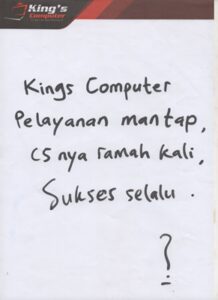 King's
Computer
Kings Computer
Pelayanan mantap,
CS nya ramah kali,
Sukses selalu.
?